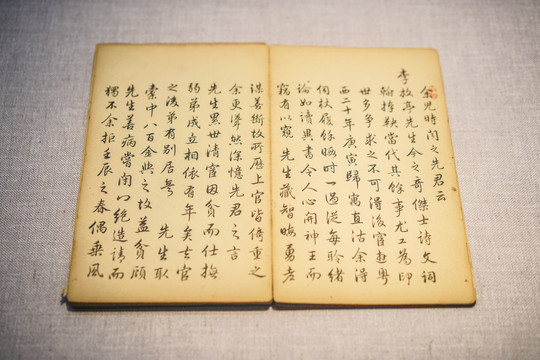 余兒時聞之先君云
李牧亭先生今之奇傑士詩文詞
翰掉鞅當代其餘事尤工為印
世多爭求之不可得後宦遊粵
西二十年庚寅歸寓直沽余得
伺杖履餘暇時一過從每聆緒
論如讀異書令人心開神王而
竊有以窺先生藏智晦勇老
謀善斷故所歷上官皆倚重之
余更瞿然深憶先君之言
先生累世清宦因貧而仕撫
弱弟成立相依有年矣去官
之後弟有別居 先生取
橐中八百金與之故益貧顧
先生善病嘗閉門絕造請而
獨不余拒壬辰之春偶乘風